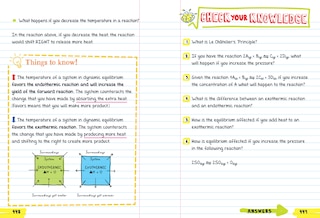 What happens if you decrease the temperature in a reaction?
In the reaction above, if you decrease the heat the reaction
would shift RIGHT to release more heat.
Things to know!
The temperature of a system in dynamic equilibrium
favors the endothermic reaction and will increase the
yield of the forward reaction. The system counteracts
the change that you have made by absorbing the extra heat
(favors means that you will make more product.)
The temperature of a system in dynamic equilibrium
favors the exothermic reaction. The system counteracts
the change that you have made by producing more heat
and shifting to the right to create more product.
Surroundings
Surroundings
System
ENDOTHERMIC
System
EXOTHERMIC
Surroundings get colder
Surroundings get warmer
CHECK YOUR KNOWLEDGE
1 What is Le Châtelier's Principle?
2
what
will happen if you increase the pressure?
3 Given the reaction
if you increase
the concentration of A what will happen to the reaction?
4 What is the difference between an endothermic reaction
and an exothermic reaction?
5 How is the equilibrium affected if you add heat to an
exothermic reaction?
6 How is equilibrium affected if you increase the pressure
in the following reaction?
ANSWERS